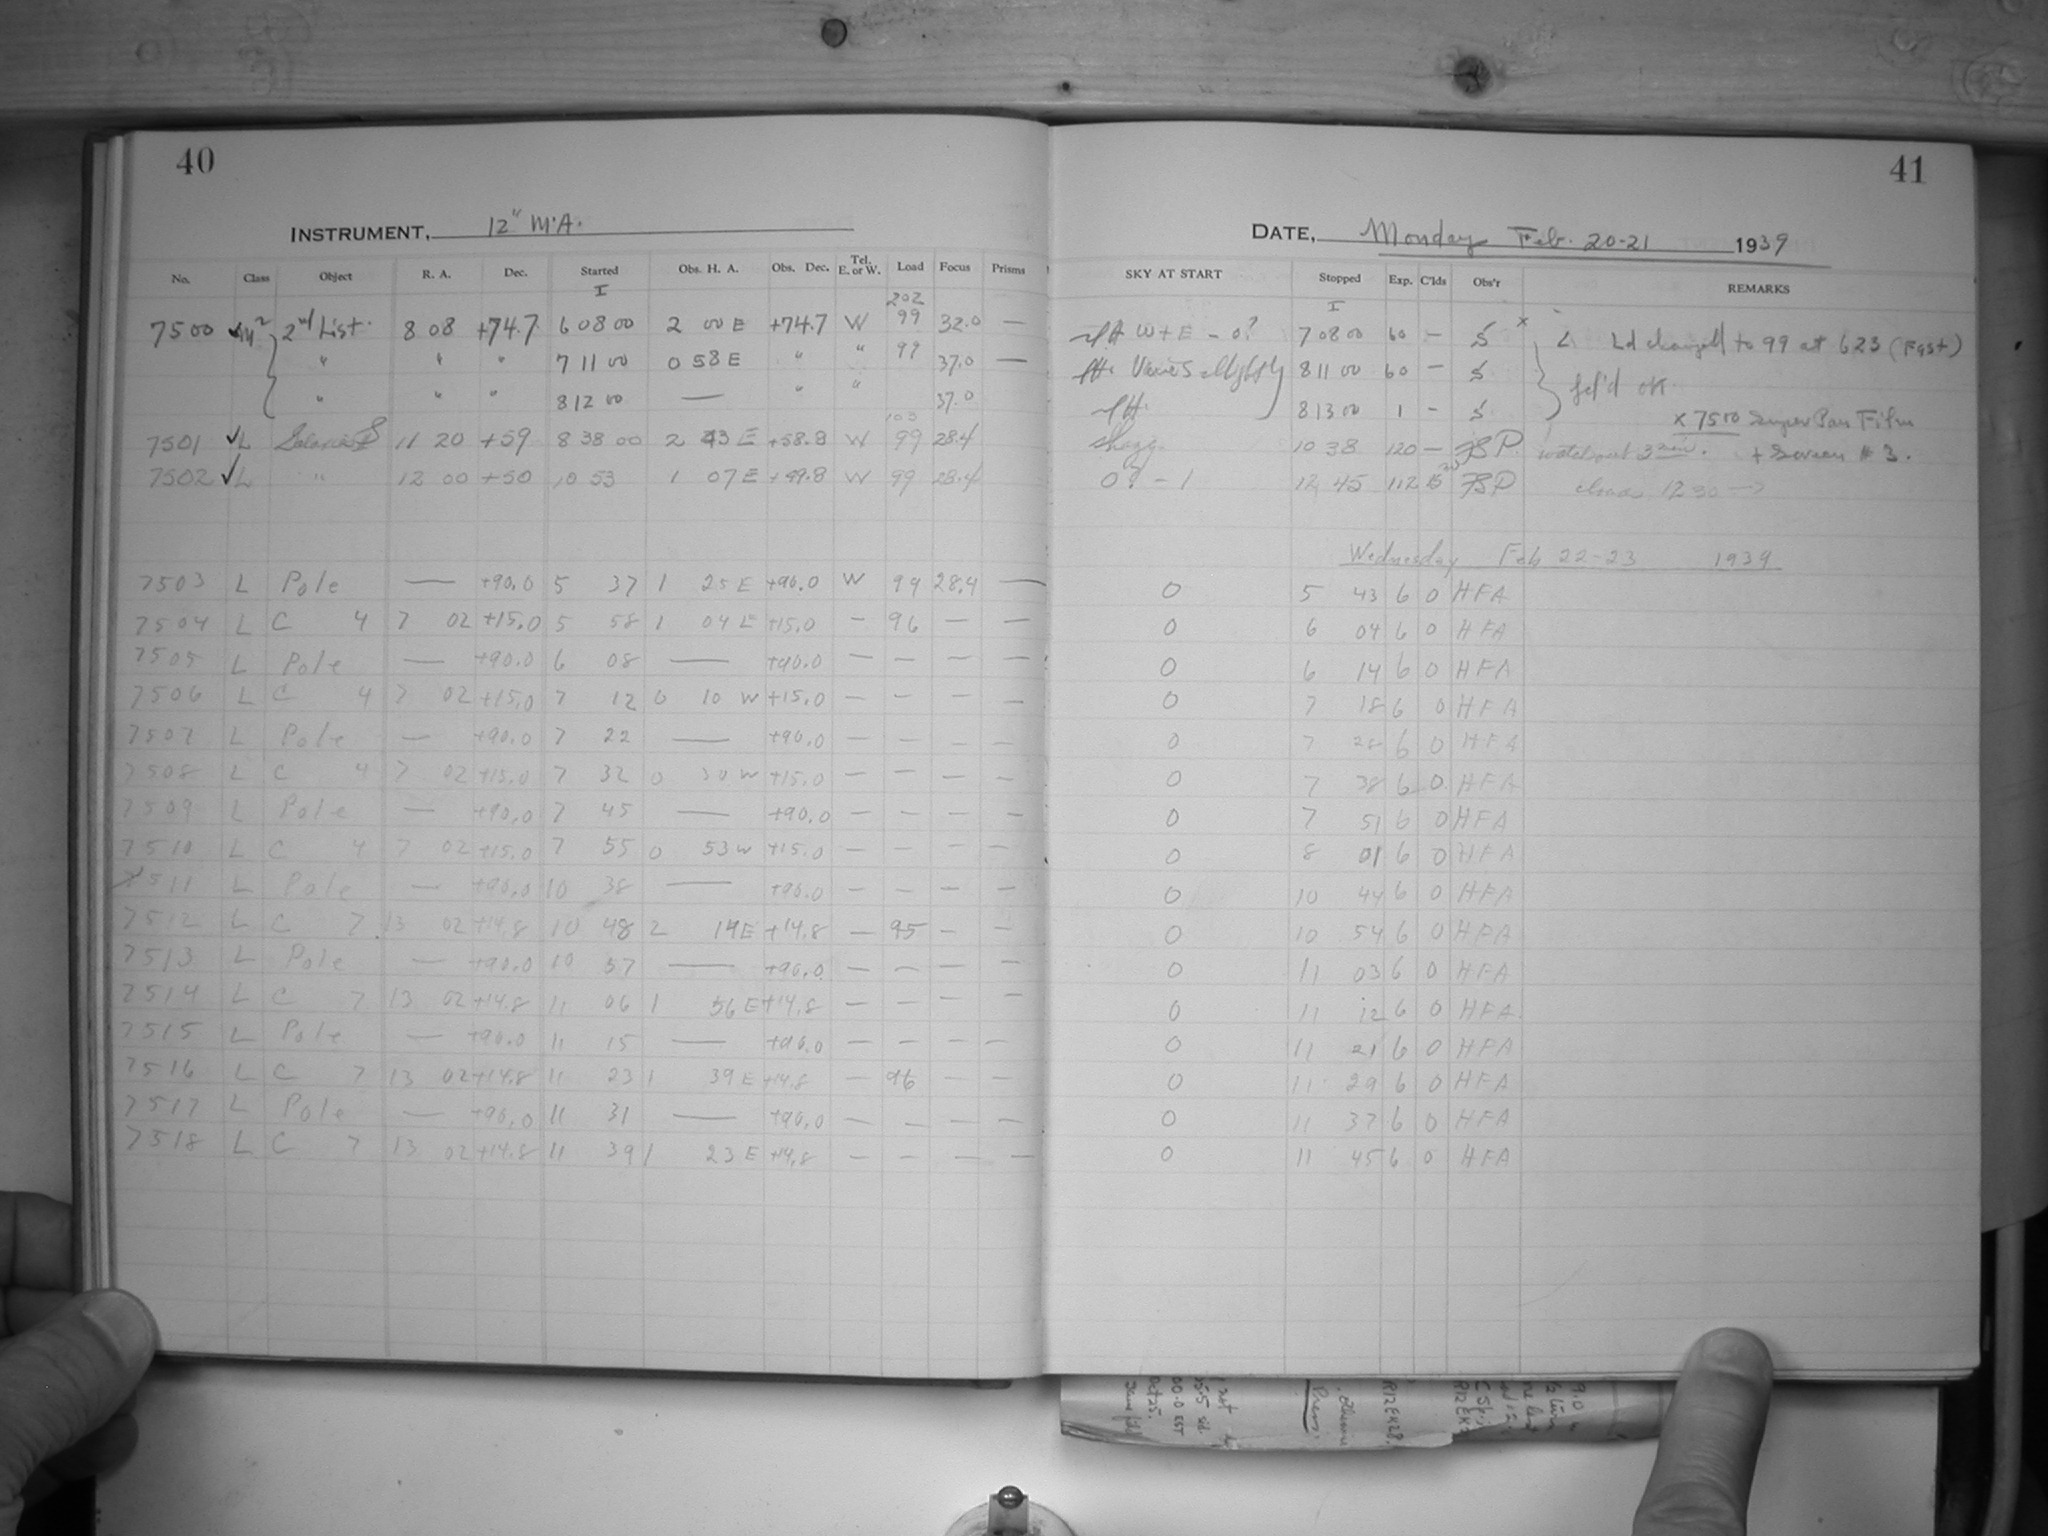 40
INSTRUMENT, 12" M.A.
No. Class Object R. A. Dec. Started Obs. H. A. Obs. Dec. Tel. E. or W. Load Focus Prisms
I 202
7500 M² 2nd List. 8 08 +74.7 6 08 00 2 00 E +74.7 W 99 32.0 —
" " " 7 11 00 0 58 E " " 99 37.0 —
" " " 8 12 00 — " " 37.0
103
7501 ✓ L 11 20 +59 8 38 00 2 43 E +58.8 W 99 28.4
7502 ✓ L " 12 00 +50 10 53 1 07 E +49.8 W 99 28.4
7503 L Pole — +90.0 5 37 1 25 E +90.0 W 99 28.4 —
7504 L C 4 7 02 +15.0 5 58 1 04 E +15.0 — 96 — —
7505 L Pole — +90.0 6 08 — +90.0 — — — —
7506 L C 4 7 02 +15.0 7 12 0 10 W +15.0 — — — —
7507 L Pole — +90.0 7 22 — +90.0 — — — —
7508 L C 4 7 02 +15.0 7 32 0 30 W +15.0 — — — —
7509 L Pole — +90.0 7 45 — +90.0 — — — —
7510 L C 4 7 02 +15.0 7 55 0 53 W +15.0 — — — —
7511 L Pole — +90.0 10 38 — +90.0 — — — —
7512 L C 7 13 02 +14.8 10 48 2 14 E +14.8 — 95 — —
7513 L Pole — +90.0 10 57 — +90.0 — — — —
7514 L C 7 13 02 +14.8 11 06 1 56 E +14.8 — — — —
7515 L Pole — +90.0 11 15 — +90.0 — — — —
7516 L C 7 13 02 +14.8 11 23 1 39 E +14.8 — 96 — —
7517 L Pole — +90.0 11 31 — +90.0 — — — —
7518 L C 7 13 02 +14.8 11 39 1 23 E +14.8 — — — —
41
DATE, Monday Feb. 20-21 1939
SKY AT START Stopped Exp. C'lds Obs'r REMARKS
I
W + E - 0? 7 08 00 60 — S x Ld changed to 99 at 6 23 (Fast)
Varies slightly 8 11 00 60 — S fel'd OK
8 13 00 1 — S x 7500 Super Pan Film
10 38 120 — FSP 3 min. + Screen # 3.
0? - 1 12 45 112 FSP clouds 12 30 →
Wednesday Feb 22-23 1939
0 5 43 6 0 HFA
0 6 04 6 0 HFA
0 6 14 6 0 HFA
0 7 18 6 0 HFA
0 7 28 6 0 HFA
0 7 38 6 0 HFA
0 7 51 6 0 HFA
0 8 01 6 0 HFA
0 10 44 6 0 HFA
0 10 54 6 0 HFA
0 11 03 6 0 HFA
0 11 12 6 0 HFA
0 11 21 6 0 HFA
0 11 29 6 0 HFA
0 11 37 6 0 HFA
0 11 45 6 0 HFA